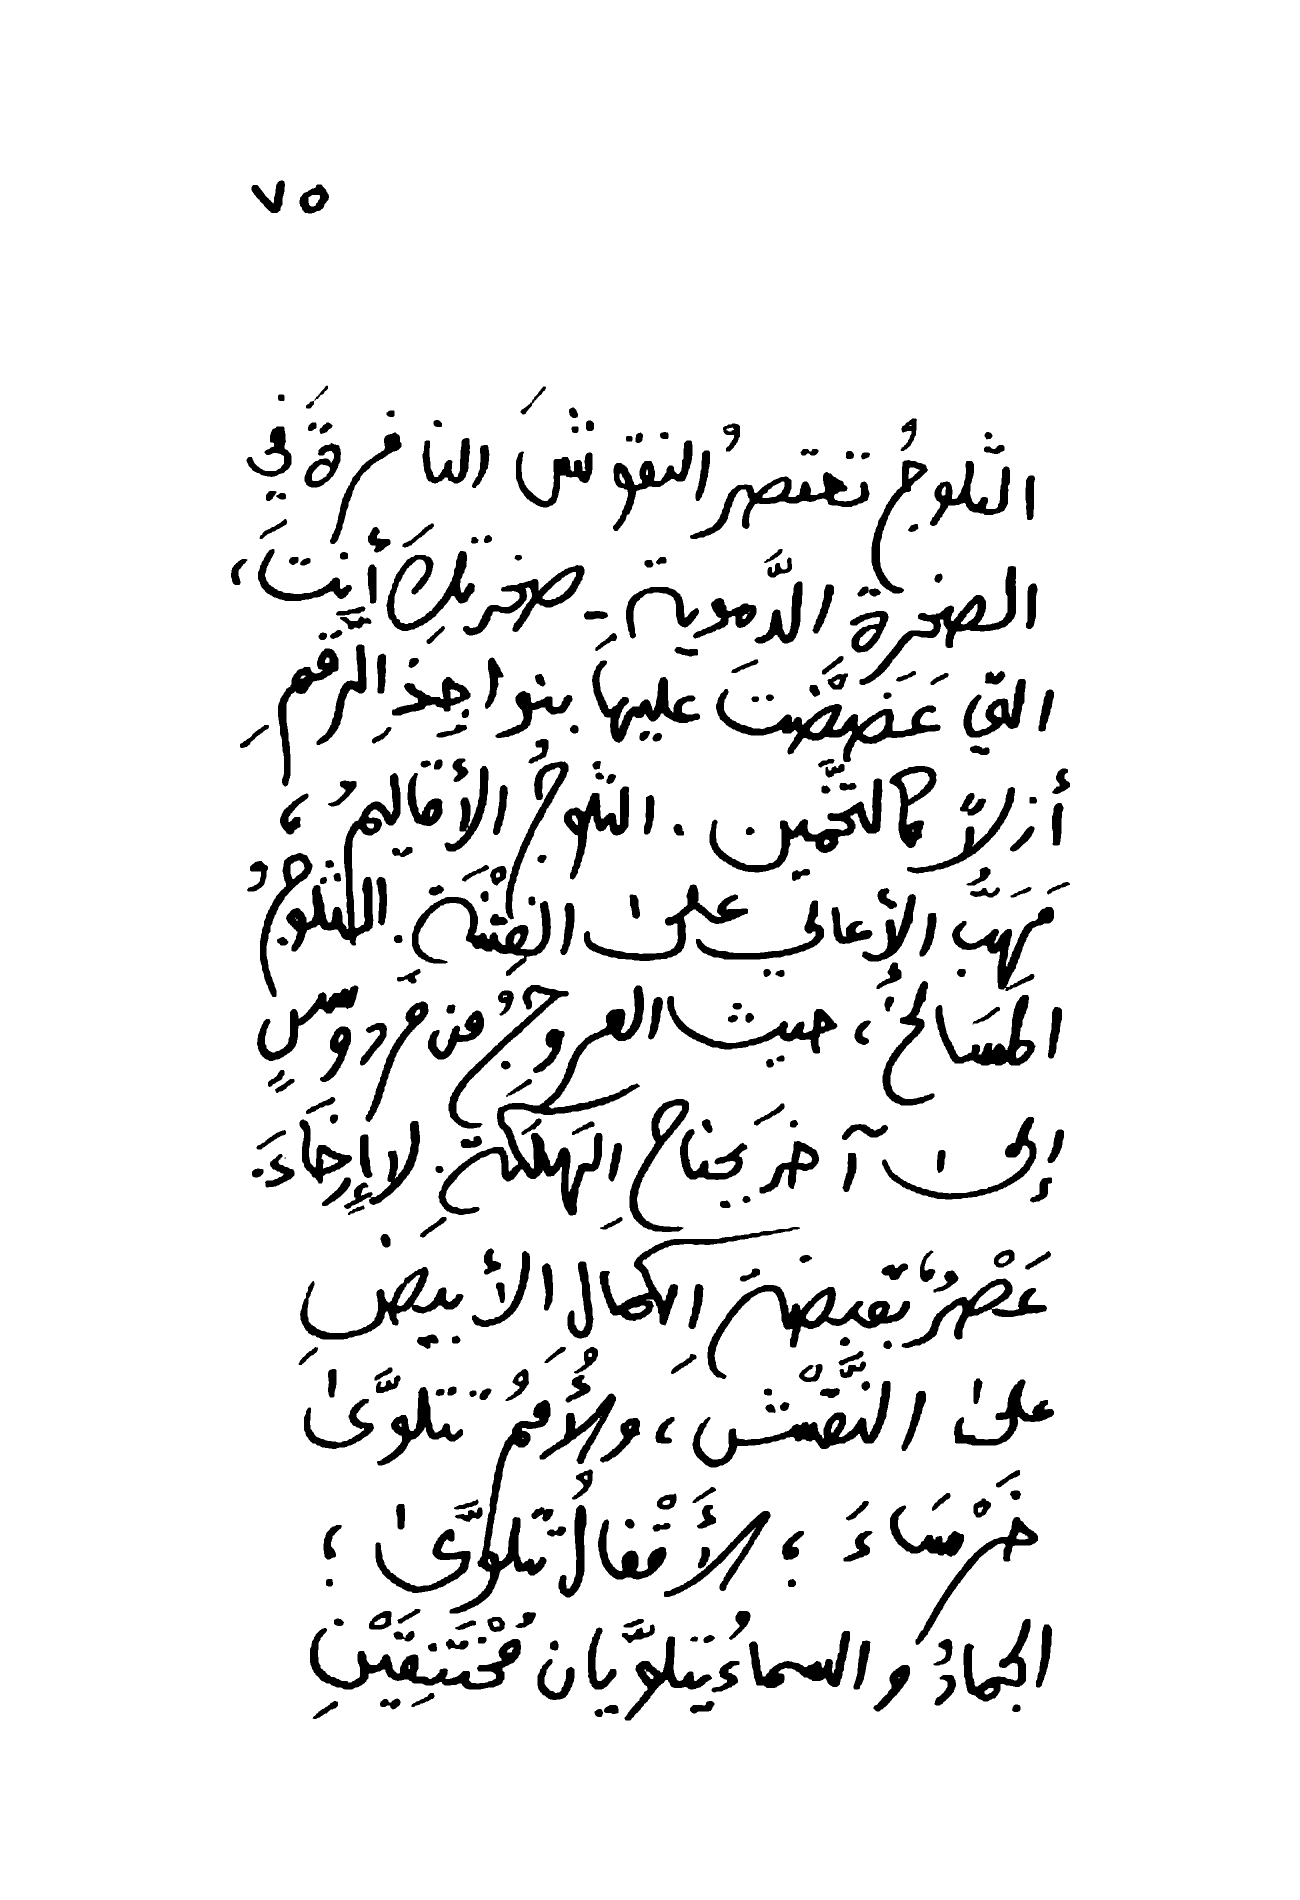 ٧٥
الثلوجُ تختصرُ النقوشَ النافرةَ في
الصخرة الدَّمويةِ ـ صخرتِكَ أنتَ،
التي عَضَضْتَ عليها بنواجِذِ الرَّقمِ
أزلاً كالتَّخمين. الثلوجُ الأقاليمُ،
مَهَبُّ الأعالي على الفِتْنَة. الثلوجُ
المَسَالخُ، حيث العروجُ من فردوسٍ
إلى آخرَ بجناح الهَلَكَةِ. لا إِخَاءَ.
عَصْرٌ بقبضةِ الكمال الأبيضِ
على النَّقْش، ولأُممُ تتلوَّى
خَرْسَاءَ؛ لأَقْفالُ تتلوَّى؛
الجمادُ والسماءُ يتلوَّيان مُخْتَنِقَيْنِ